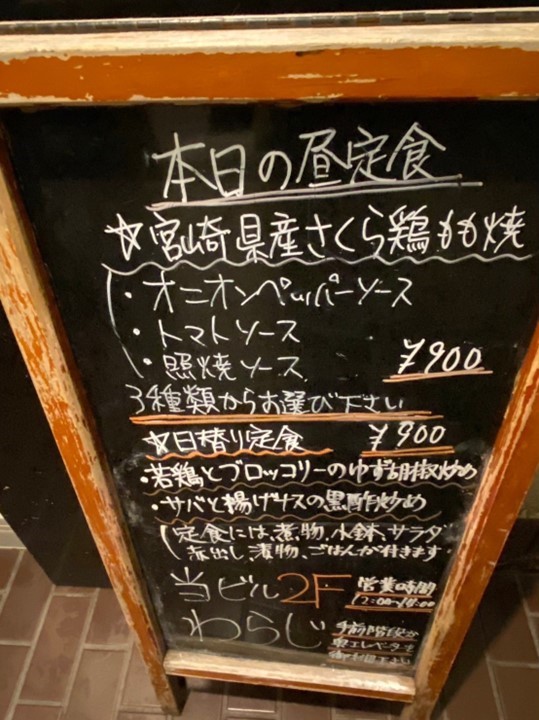 本日の昼定食
☆宮崎県産さくら鶏もも焼
・オニオンペッパーソース
・トマトソース
・照焼ソース
¥900
3種類からお選び下さい
☆日替り定食 ¥900
・若鶏とブロッコリーのゆず胡椒炒め
・サバと揚げナスの黒酢炒め
定食には、煮物、小鉢、サラダ
赤出し、漬物、ごはんが付きます
当ビル2F
営業時間
わらじ
手前階段か
エレベータを